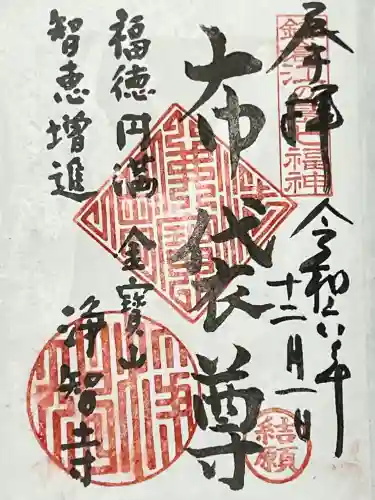 奉拝
鎌倉江の島七福神
令和六年
十二月一日
布袋尊
結願
福徳円満
智恵増進
金寳山
浄智寺